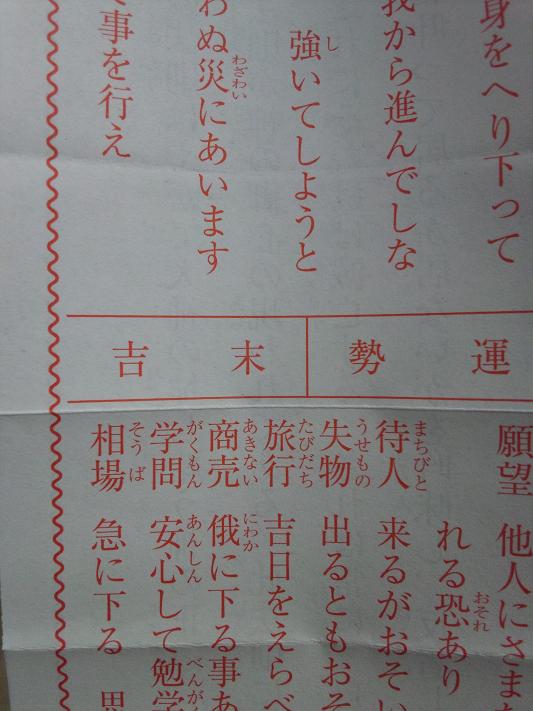 身をへり下って
我から進んでしな
強いてしようと
わぬ災にあいます
事を行え
運勢
末吉
願望 他人にさま
れる恐あり
待人 来るがおそい
失物 出るともおそ
旅行 吉日をえらべ
商売 俄に下る事あ
学問 安心して勉学
相場 急に下る 思